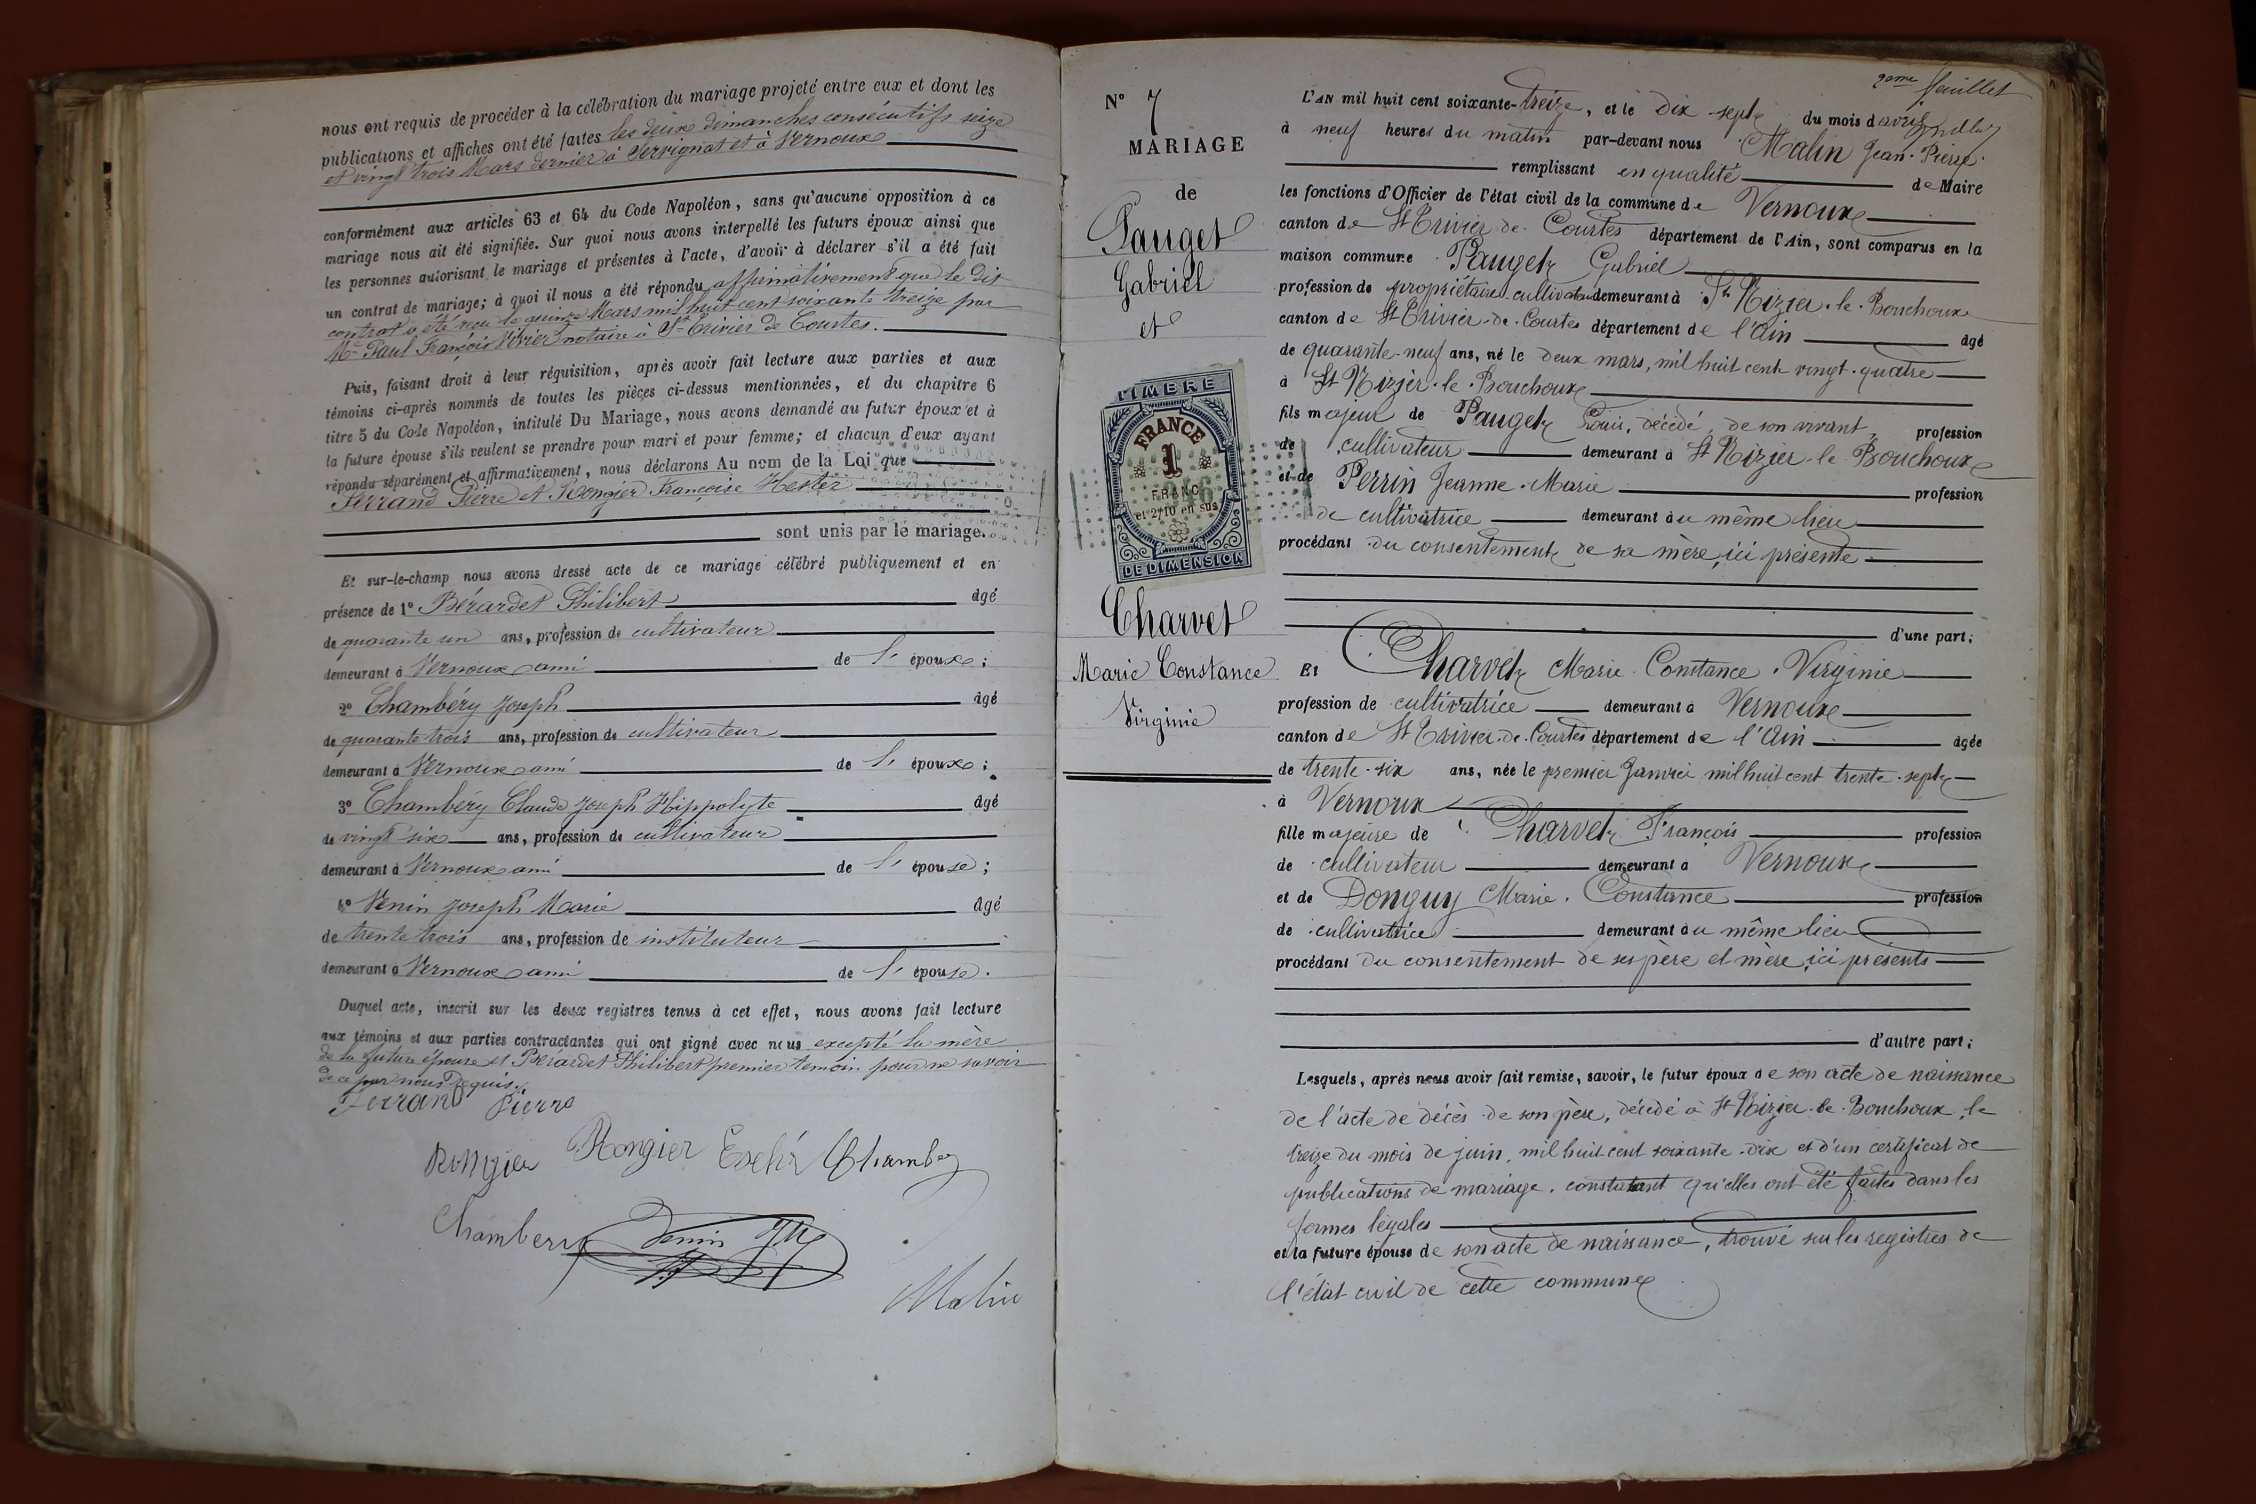 nous ont requis de procéder à la célébration du mariage projeté entre eux et dont les
publications et affiches ont été faites les deux dimanches consécutifs seize
et vingt trois Mars dernier à Servignat et à Vernoux
conformément aux articles 63 et 64 du Code Napoléon, sans qu'aucune opposition à ce
mariage nous ait été signifiée. Sur quoi nous avons interpellé les futurs époux ainsi que
les personnes autorisant le mariage et présentes à l'acte, d'avoir à déclarer s'il a été fait
un contrat de mariage; à quoi il nous a été répondu affirmativement que le dit
contrat a été reçu le quinze Mars mil huit cent soixante treize par
Me Paul François Vivier notaire à St Trivier de Courtes.
Puis, faisant droit à leur réquisition, après avoir fait lecture aux parties et aux
témoins ci-après nommés de toutes les pièces ci-dessus mentionnées, et du chapitre 6
titre 5 du Code Napoléon, intitulé Du Mariage, nous avons demandé au futur époux et à
la future épouse s'ils veulent se prendre pour mari et pour femme; et chacun d'eux ayant
répondu séparément et affirmativement, nous déclarons Au nom de la Loi que
Ferrand Pierre et Rongier Françoise Hester
sont unis par le mariage.
Et sur-le-champ nous avons dressé acte de ce mariage célébré publiquement et en
présence de 1o Bérardet Philibert âgé
de quarante un ans, profession de cultivateur
demeurant à Vernoux ami de l' époux;
2o Chambéry Joseph âgé
de quarante trois ans, profession de cultivateur
demeurant à Vernoux ami de l' époux;
3o Chambéry Claude Joseph Hippolyte âgé
de vingt six ans, profession de cultivateur
demeurant à Vernoux ami de l' épouse;
4o Venin Joseph Marie âgé
de trente trois ans, profession de instituteur
demeurant à Vernoux ami de l' épouse.
Duquel acte, inscrit sur les deux registres tenus à cet effet, nous avons fait lecture
aux témoins et aux parties contractantes qui ont signé avec nous excepté la mère
de la future épouse et Bérardet Philibert premier temoin pour ne savoir
de ce par nous requis.
Ferrand Pierre
Rongier Rongier Chambery
Chambery Venin JM
Malin
2eme feuillet
No 7
MARIAGE
de
Pauget
Gabriel
et
TIMBRE
FRANCE
1
FRANC
et 2/10 en sus
DE DIMENSION
Charvet
Marie Constance
Virginie
L'AN mil huit cent soixante-treize, et le dix sept du mois d'avril
à neuf heures du matin par-devant nous Malin Jean-Pierre
remplissant en qualité de Maire
les fonctions d'Officier de l'état civil de la commune de Vernoux
canton de St Trivier-de-Courtes département de l'Ain, sont comparus en la
maison commune Pauget Gabriel
profession de propriétaire cultivateur demeurant à St Nizier-le-Bouchoux
canton de St Trivier-de-Courtes département de l'Ain âgé
de quarante-neuf ans, né le deux mars, mil huit cent vingt-quatre
à St Nizier-le-Bouchoux
fils majeur de Pauget Louis, décédé, de son vivant, profession
de cultivateur demeurant à St Nizier-le-Bouchoux
et de Perrin Jeanne-Marie profession
de cultivatrice demeurant au même lieu
procédant du consentement de sa mère, ici présente
d'une part;
Et Charvet Marie-Constance-Virginie
profession de cultivatrice demeurant à Vernoux
canton de St Trivier-de-Courtes département de l'Ain âgée
de trente-six ans, née le premier Janvier mil huit cent trente-sept
à Vernoux
fille majeure de Charvet François profession
de cultivateur demeurant à Vernoux
et de Donguy Marie-Constance profession
de cultivatrice demeurant au même lieu
procédant du consentement de ses père et mère, ici présents
d'autre part;
Lesquels, après nous avoir fait remise, savoir, le futur époux de son acte de naissance
de l'acte de décès de son père, décédé à St Nizier-le-Bouchoux, le
treize du mois de juin, mil huit cent soixante-dix et d'un certificat de
publications de mariage, constatant qu'elles ont été faites dans les
formes légales
et la future épouse de son acte de naissance, trouvé sur les registres de
l'état civil de cette commune